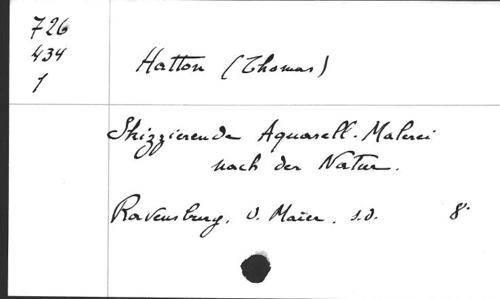 726
434
1
Hatton (Thomas)
Skizzierende Aquarell-Malerei
nach der Natur.
Ravensburg, O. Maier, s.d. 8°